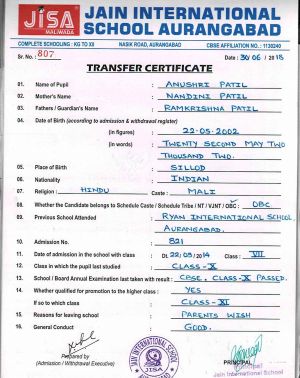 JISA
MALIWADA
JAIN INTERNATIONAL
SCHOOL AURANGABAD
COMPLETE SCHOOLING : KG TO XII NASIK ROAD, AURANGABAD CBSE AFFILIATION NO. : 1130240
Sr. No. : 807 Date : 30/06/2018
TRANSFER CERTIFICATE
01. Name of Pupil : ANUSHRI PATIL
02. Mother's Name : NANDINI PATIL
03. Fathers / Guardian's Name : RAMKRISHNA PATIL
04. Date of Birth (according to admission & withdrawal register)
(in figures) : 22-05-2002
(in words) : TWENTY SECOND MAY TWO
THOUSAND TWO.
05. Place of Birth : SILLOD
06. Nationality : INDIAN
07. Religion : HINDU Caste : MALI
08. Whether the Candidate belongs to Schedule Caste / Schedule Tribe / NT / VJNT / OBC : OBC.
09. Previous School Attended : RYAN INTERNATIONAL SCHOOL
AURANGABAD.
10. Admission No. : 821
11. Date of admission in the school with class : Dt. 22/05/2014 Class : VII
12. Class in which the pupil last studied : CLASS-X
13. School / Board Annual Examination last taken with result : CBSE, CLASS-X PASSED.
14. Whether qualified for promotion to the higher class : YES
If so to which class : CLASS-XI
15. Reasons for leaving school : PARENTS WISH
16. General Conduct : GOOD.
Prepared by
(Admission / Withdrawal Executive)
JAIN INTERNATIONAL SCHOOL
JISA
PRINCIPAL
Principal
Jain International School